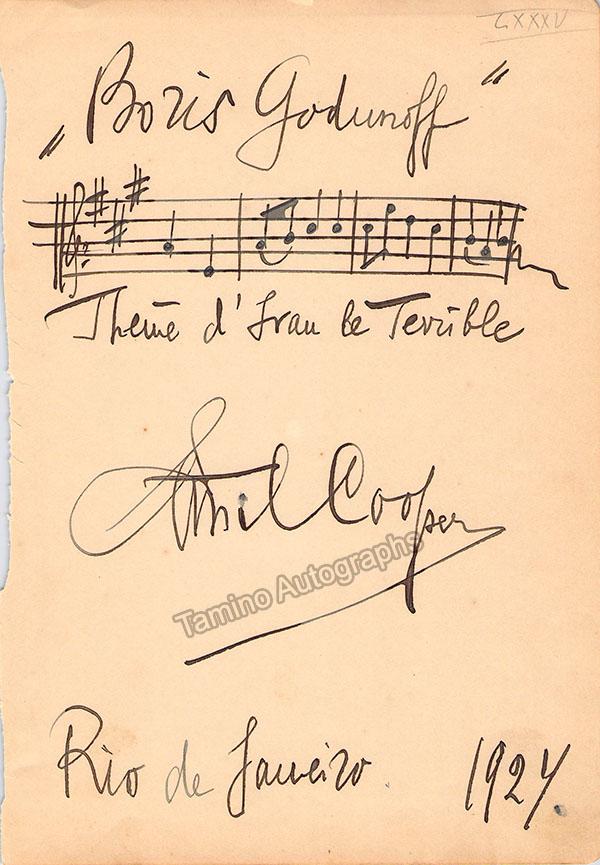 LXXXV
„Boris Godunoff"
Thème d'Ivan le Terrible
Emil Cooper
Tamino Autographs
Rio de Janeiro 1924.